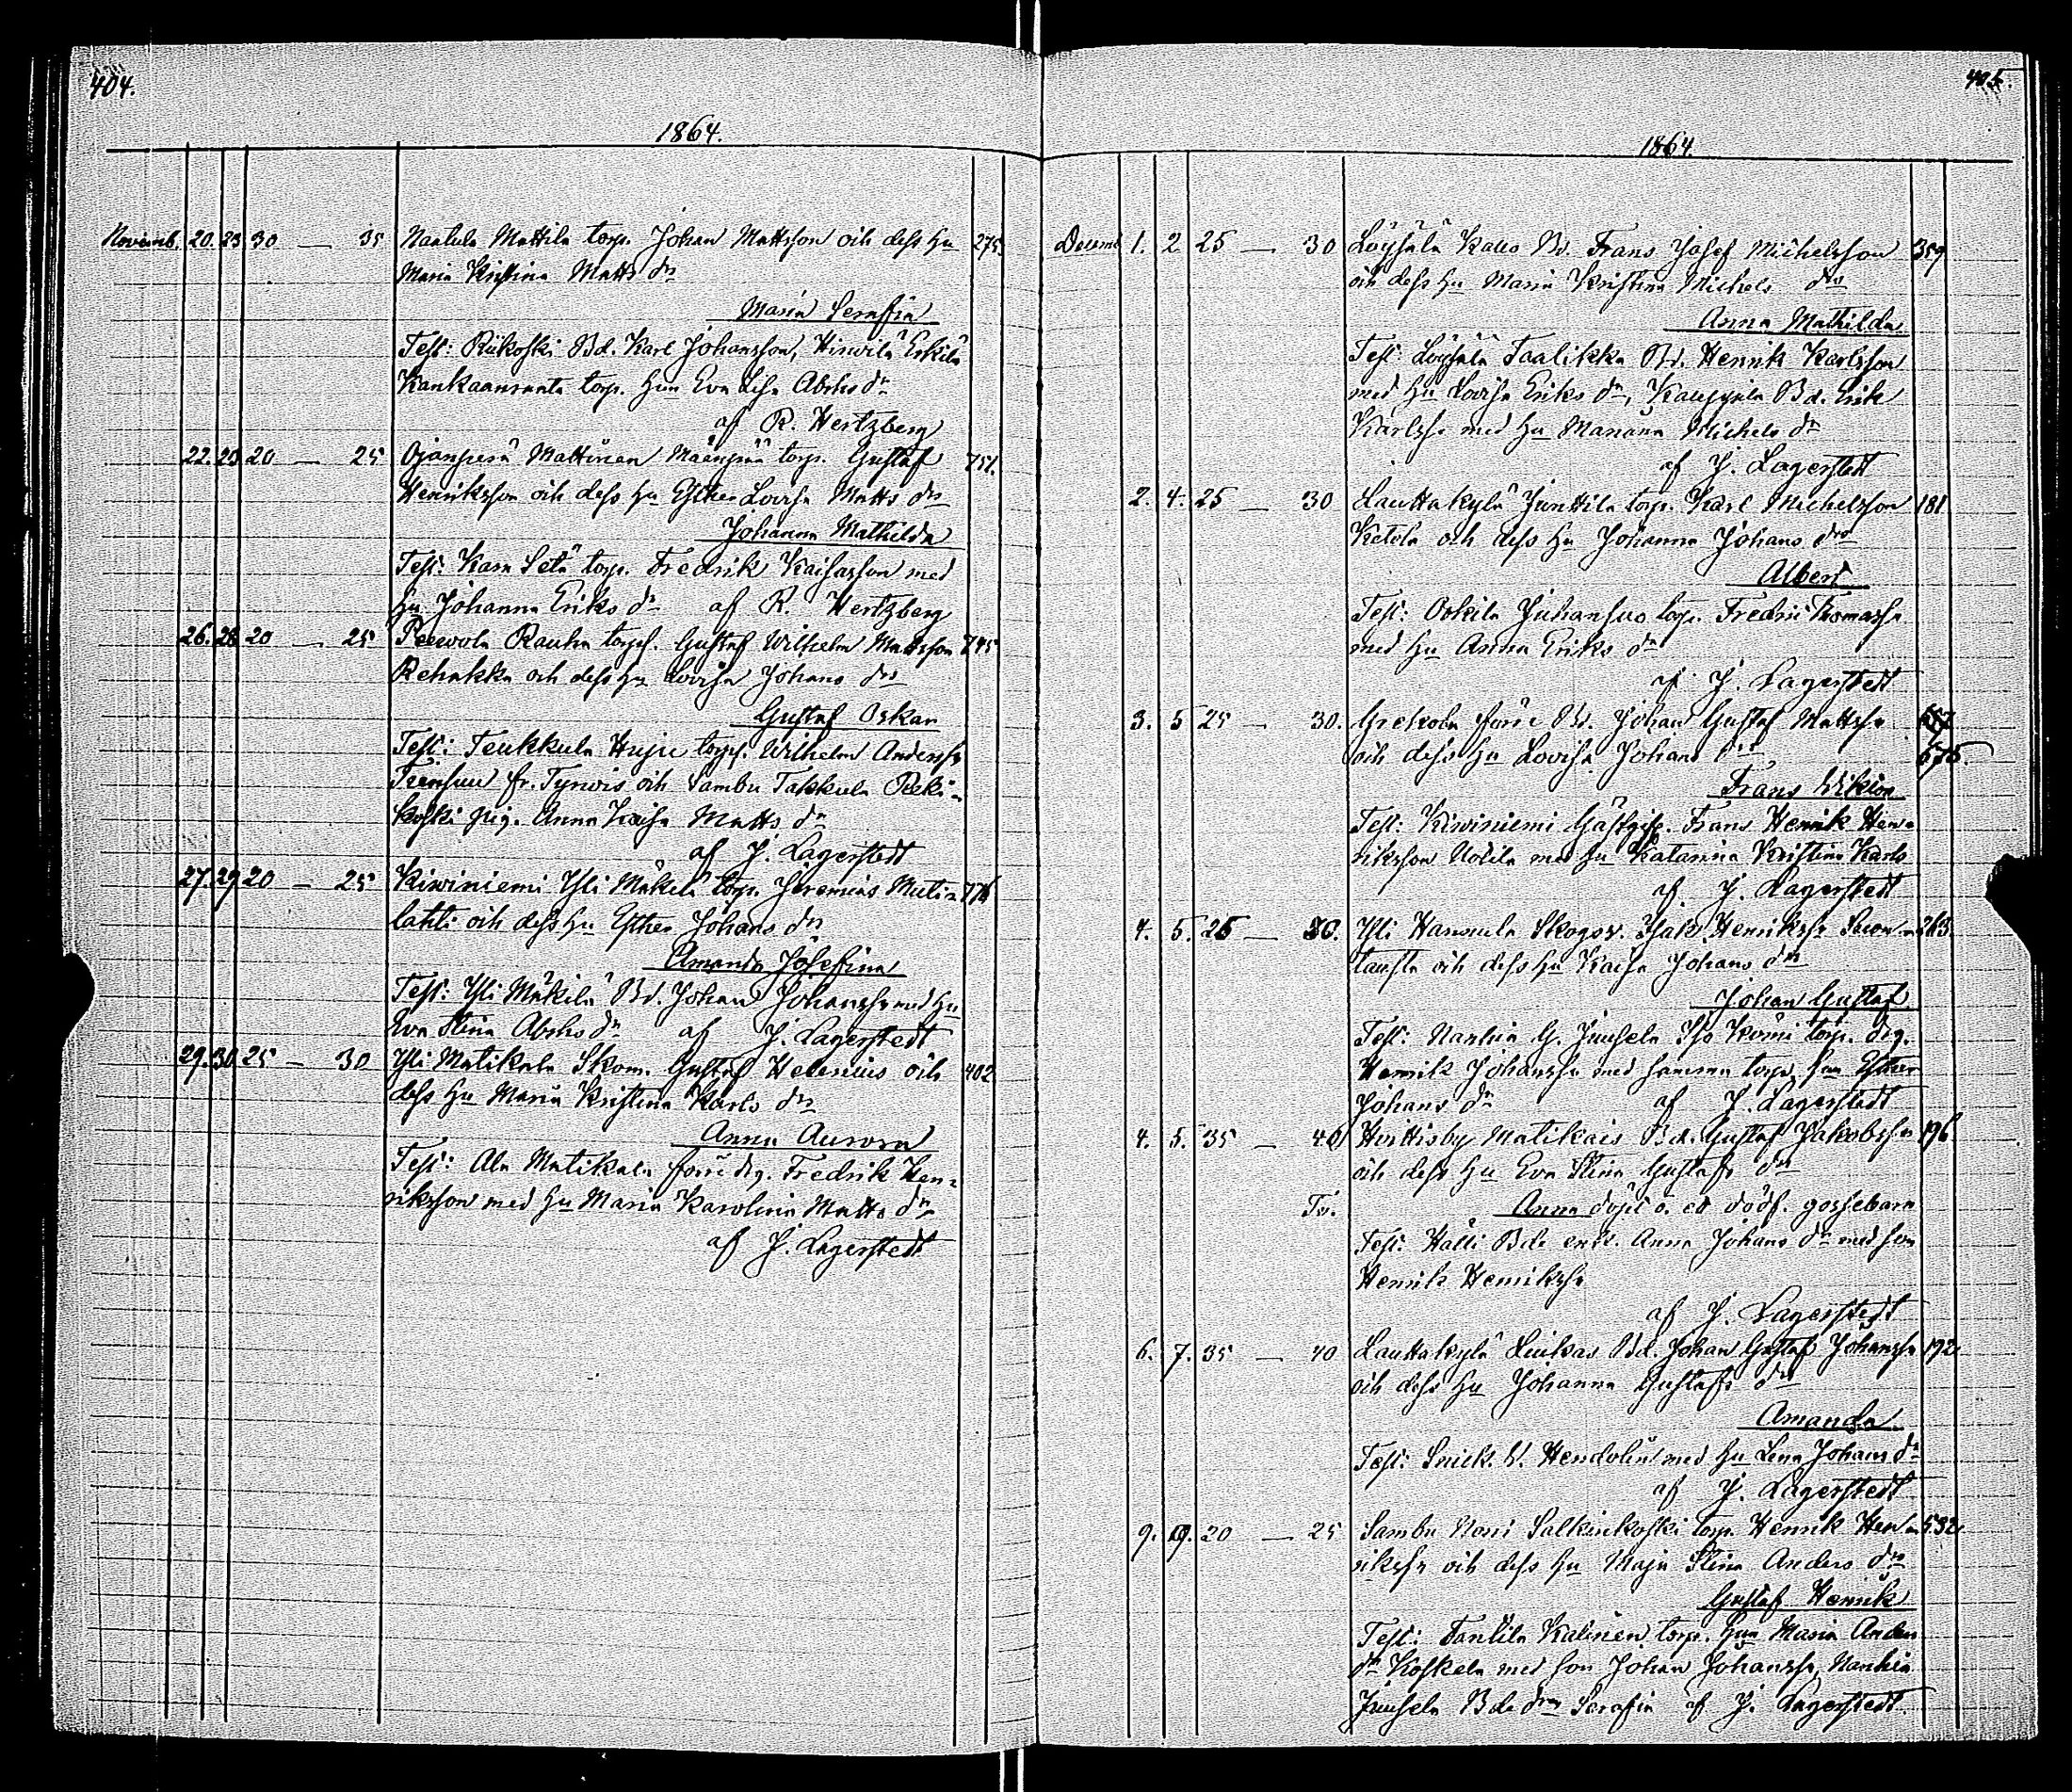 404.
1864.
Novemb. 20. 23 30 — 35 Naatula Mattila torp. Johan Mattsson och dess Hu 275.
Maria Kristina Matts dr
Maria Serafia
Test: Riikoski Bd. Karl Johansson, Hirwilä Erkilä
Kankaanranta torp. Hun Eva Lisa Abrhs dr
af R. Hertzberg
22. 23 20 — 25 Ojanperä Mattinen Mäenpää torp. Gustaf 751.
Henriksson och dess Hu Esther Lovisa Matts dr
Johanna Mathilda
Test: Karo Setä torp. Fredrik Kaisasson med
Hu Johanna Eriks dr af R. Hertzberg
26. 28 20 — 25 Peewola Rauha torp. Gustaf Wilhelm Mattsson 745
Rehakka och dess Hu Lovisa Johans dr
Gustaf Oskar
Test: Teukkula Huju torp. Wilhelm Anderss
fr. Tyrwis och Sambu Takkula Reki-
koski pig. Anna Kaisa Matts dr
af J. Lagerstedt
27. 29 20 — 25 Kiwiniemi Yli Mäkelä torp. Jeremias Muti- 776
lahti och dess Hu Esther Johans dr
Amanda Josefina
Test: Yli Mäkilä Bd. Johan Johansss med Hu
Eva Stina Abrhs dr af J. Lagerstedt
29. 30 25 — 30 Yli Matikala Skom. Gustaf Helenius och 402
dess Hu Maria Kristina Karls dr
Anna Aurora
Test: Ala Matikala drg. Fredrik Hen-
riksson med Hu Maria Karolina Matts dr
af J. Lagerstedt
405.
1864.
Decemb. 1. 2 25 — 30 Löysälä Kallo Bd. Frans Josef Michelsson 359
och dess Hu Maria Kristina Michels dr
Anna Mathilda
Test: Löysälä Taalikka Bd. Henrik Karlsson
med Hu Lovisa Eriks dr, Kauppila Bd. Erik
Karlss med Hu Mariana Michels dr
af J. Lagerstedt
2. 4. 25 — 30 Lauttakylä Junttila torp. Karl Michelsson 181
Ketola och dess Hu Johanna Johans dr
Albert
Test: Juhansuo torp. Fredric Thomass
med Hu Anna Eriks dr
af J. Lagerstedt
3. 5 25 — 30. Grekola Bd. Johan Gustaf Mattss
och dess Hu Lovisa Johans dr 575.
Frans Wiktor
Test: Kiwiniemi Gästgifv. Frans Henrik Hen-
riksson Uotila med Hu Katarina Kristina Karls
af J. Lagerstedt
4. 5. 25 — 30. Yli Hannula Skogsv. Isak Henrikss Sawon- 263.
tausta och dess Hu Kaisa Johans dr
Johan Gustaf
Test: Nanhia G. Juusela Iso Kömi torp. drg.
Henrik Johanss med samma torps Hun Esther
Johans dr af J. Lagerstedt
4. 5. 35 — 40 Hvittisby Matikais Bd. Gustaf Jakobss 196
och dess Hu Eva Stina Gustafs dr
Tv. Anna döpt o. ett dödf. gossebarn
Test: Hälli Bde enk. Anna Johans dr med son
Henrik Henrikss
af J. Lagerstedt
6. 7. 35 — 40 Lauttakylä Liukas Bd. Johan Gustaf Johanss 192
och dess Hu Johanna Gustafs dr
Amanda
Test: Snick. Hendolin med Hu Lena Johans dr
af J. Lagerstedt
9. 19. 20 — 25 Sambu Norri Salkinkoski torp. Henrik Hen- 532
rikss och dess Hu Maja Stina Anders dr
Gustaf Henrik
Test: Tantila Kalinen torp. Hun Maria Anders
dr Koskela med son Johan Johanss, Nanhia
Juusela Bde dr Serafia af J. Lagerstedt.